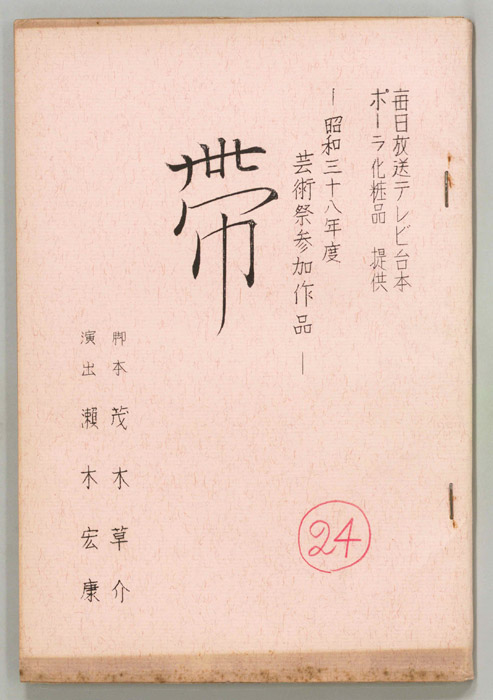 毎日放送テレビ台本
ポーラ化粧品 提供
―昭和三十八年度
芸術祭参加作品―
帯
脚本 茂木草介
演出 瀬木宏康
24